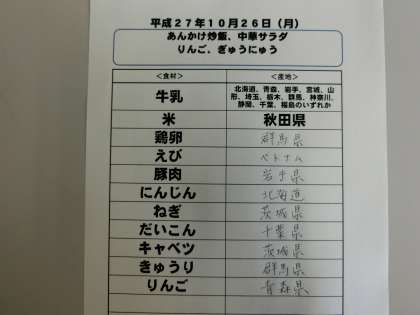 平成27年10月26日（月）
あんかけ炒飯、中華サラダ
りんご、ぎゅうにゅう
＜食材＞ ＜産地＞
牛乳 北海道、青森、岩手、宮城、山
形、埼玉、栃木、群馬、神奈川、
静岡、千葉、福島のいずれか
米 秋田県
鶏卵 群馬県
えび ベトナム
豚肉 岩手県
にんじん 北海道
ねぎ 茨城県
だいこん 千葉県
キャベツ 茨城県
きゅうり 群馬県
りんご 青森県